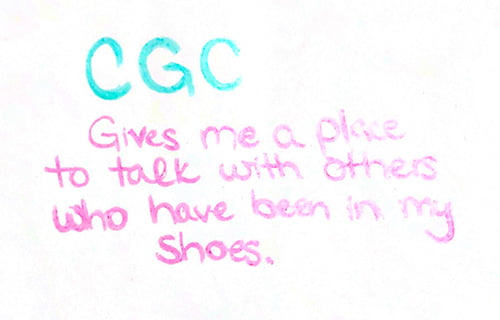 CGC
Gives me a place
to talk with others
who have been in my
shoes.